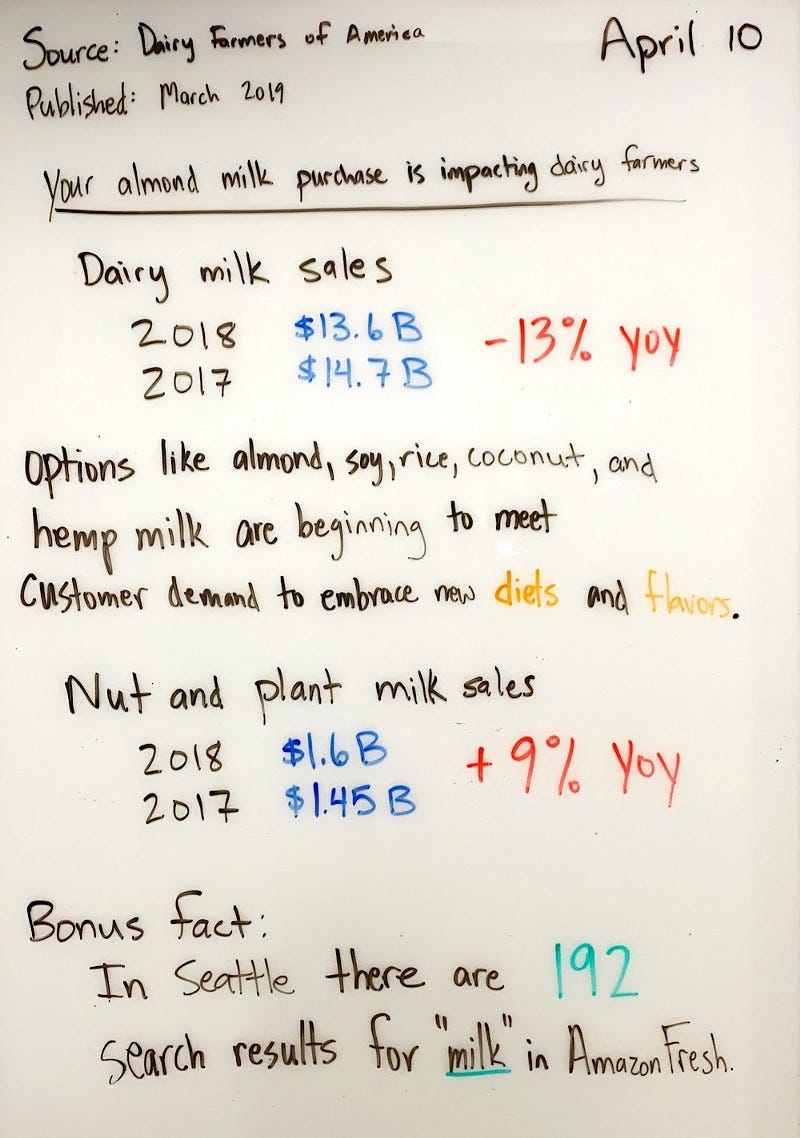 Source: Dairy Farmers of America
April 10
Published: March 2019
Your almond milk purchase is impacting dairy farmers
Dairy milk sales
2018 $13.6 B
-13% YOY
2017 $14.7 B
Options like almond, soy, rice, coconut, and
hemp milk are beginning to meet
customer demand to embrace new diets and flavors.
Nut and plant milk sales
2018 $1.6 B
+9% YOY
2017 $1.45 B
Bonus fact:
In Seattle there are 192
search results for "milk" in AmazonFresh.